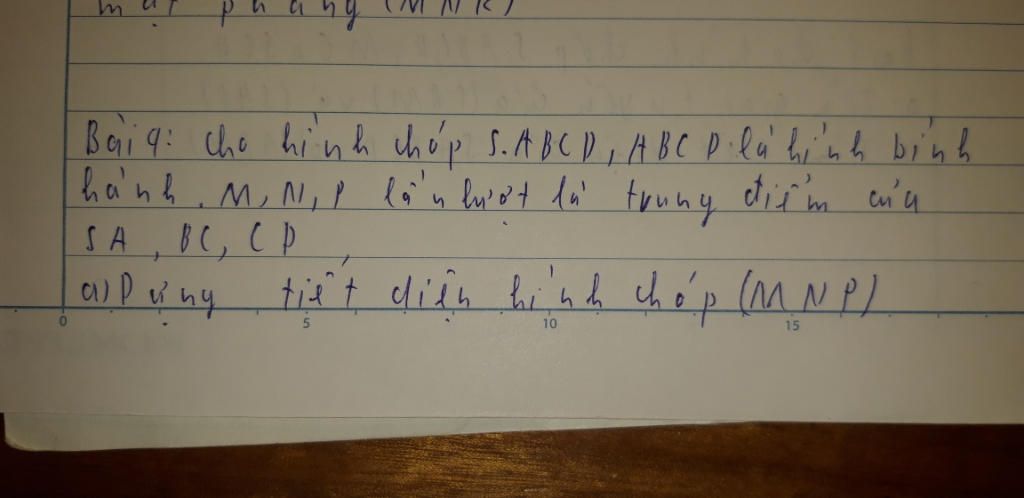 mặt phẳng (MNK)
Bài 9: Cho hình chóp S.ABCD, ABCD là hình bình
hành. M, N, P lần lượt là trung điểm của
SA, BC, CD
a) Dựng tiết diện hình chóp (MNP)
0 5 10 15